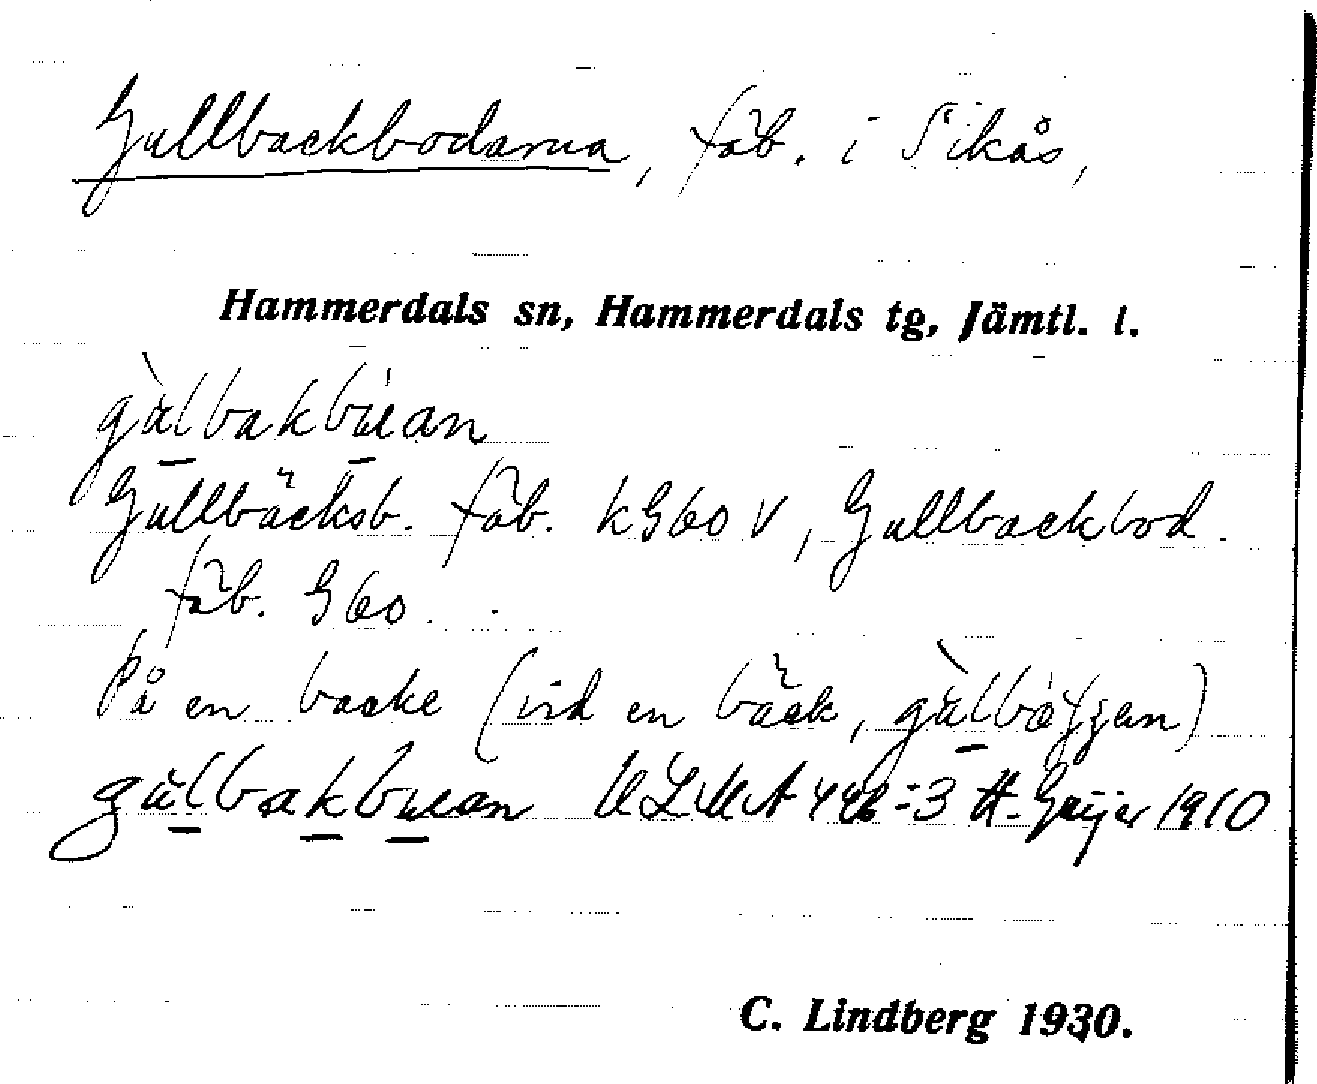 Gullbackbodarna, fäb. i Sikås,
Hammerdals sn, Hammerdals tg, Jämtl. l.
Gullbäcksb. fäb. k G60 V, Gullbackbod.
fäb. G60.
På en backe (vid en bäck,
ULMA 446:3 H. Geijer 1910
C. Lindberg 1930.